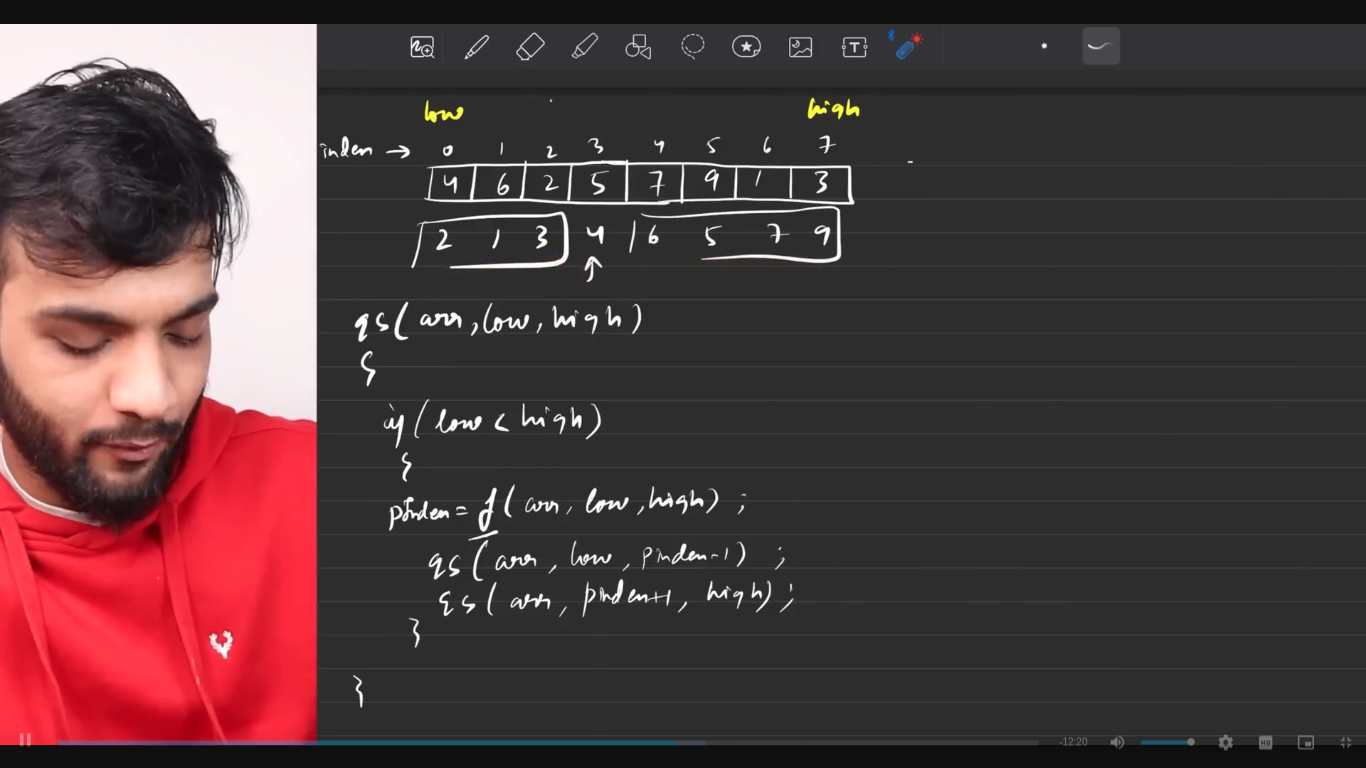 low high
inden → 0 1 2 3 4 5 6 7
4 6 2 5 7 9 1 3
2 1 3 4 6 5 7 9
qs(arr, low, high)
{
if (low < high)
{
pInden = f(arr, low, high);
qs(arr, low, pInden-1);
qs(arr, pInden+1, high);
}
}
-12:20 HQ